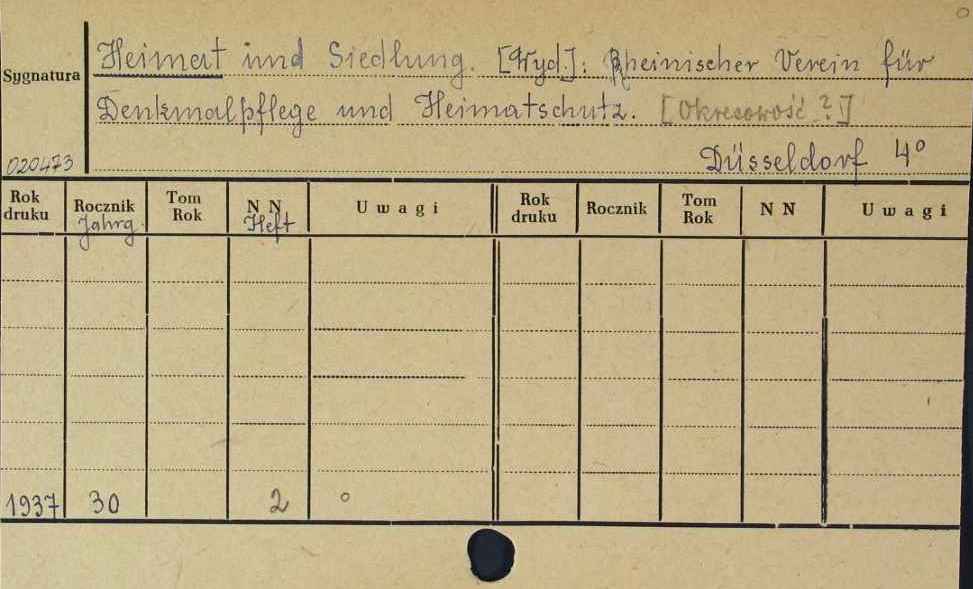 Heimat und Siedlung. [Wyd.]: Rheinischer Verein für
Sygnatura
Denkmalpflege und Heimatschutz. [Okresowość ?]
020473
Düsseldorf 4°
Rok druku Rocznik Tom Rok N N Uwagi Rok druku Rocznik Tom Rok N N Uwagi
Jahrg. Heft
1937 30 2 °